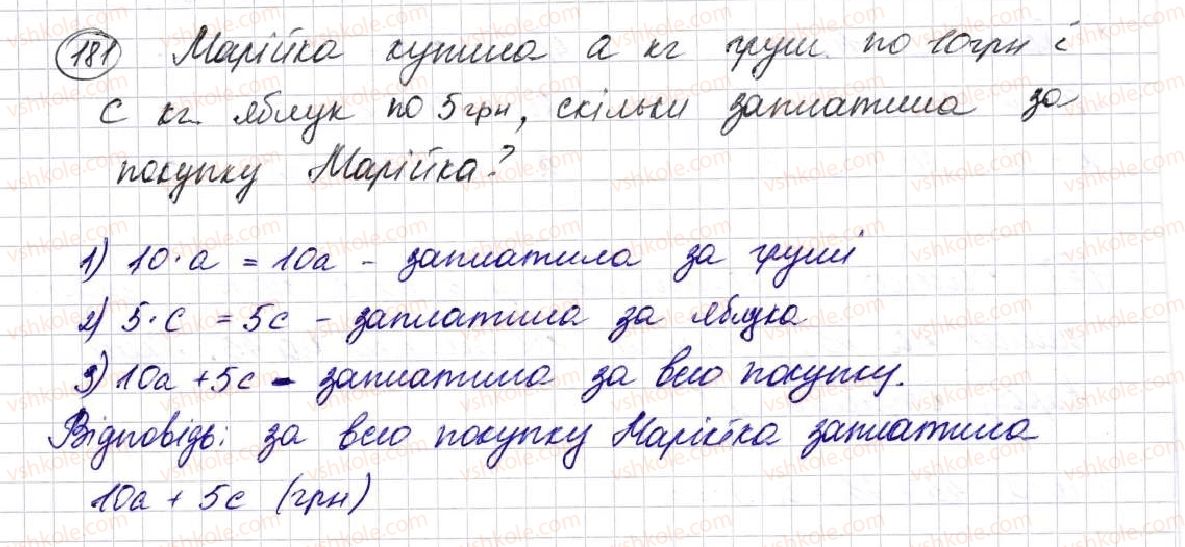 181 Марійка купила а кг груш по 10грн і
с кг. яблук по 5грн, скільки заплатила за
покупку Марійка?
1) 10·а = 10а - заплатила за груші
2) 5·с = 5с - заплатила за яблука
3) 10а + 5с - заплатила за всю покупку.
Відповідь: за всю покупку Марійка заплатила
10а + 5с (грн)
vshkole.com